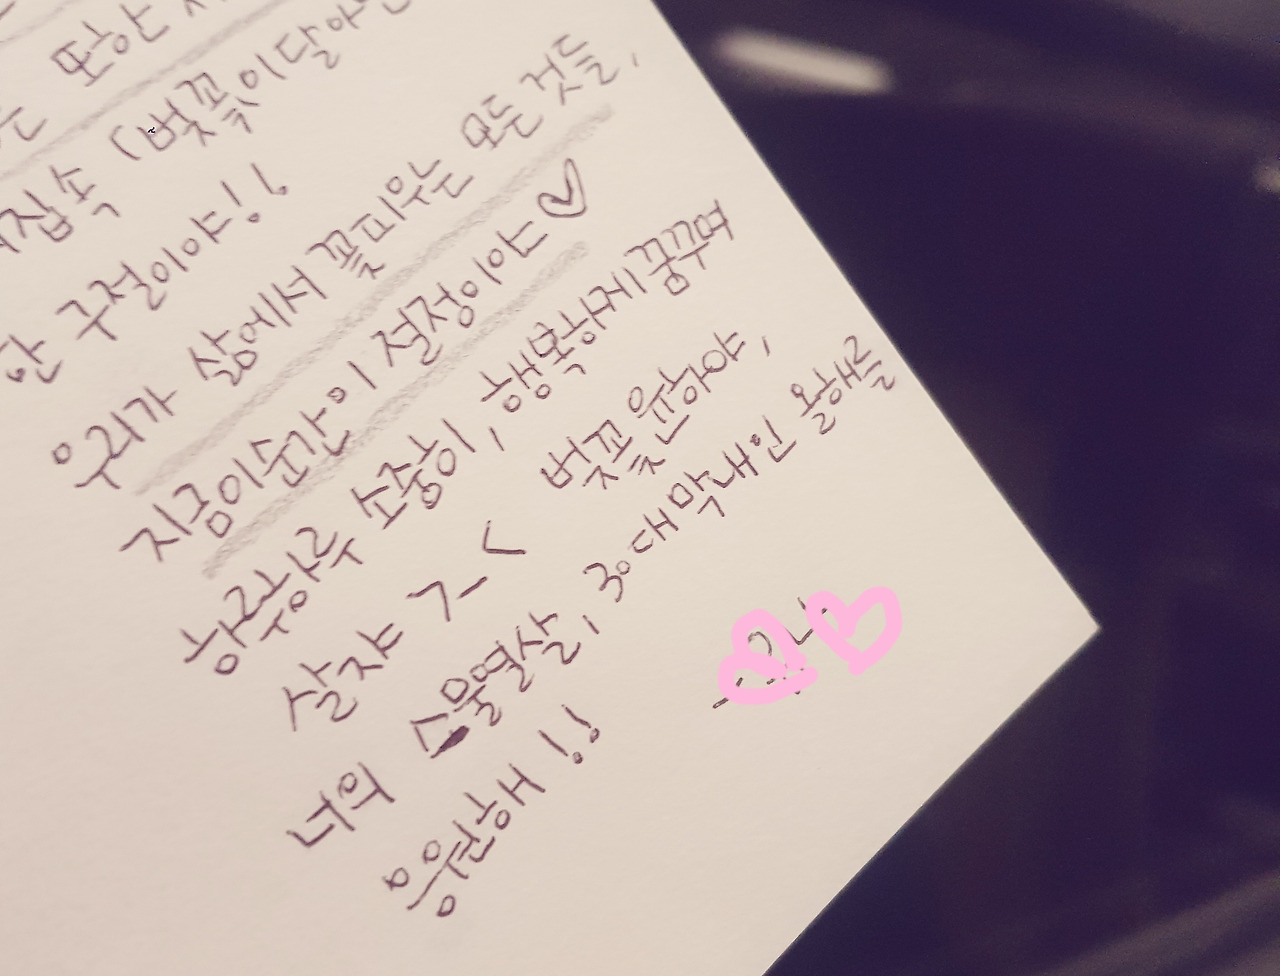 또한
집속 (벚꽃이 달아난
한 구절이야!!
우리가 삶에서 꽃피우는 모든 것들,
지금이순간이 절정이야♡
하루하루 소중히, 행복하게 꿈꾸며
살자 ㄱ_< 벚꽃 윤하야,
너의 스물열살, 30대 막내인 올해를
응원해!!